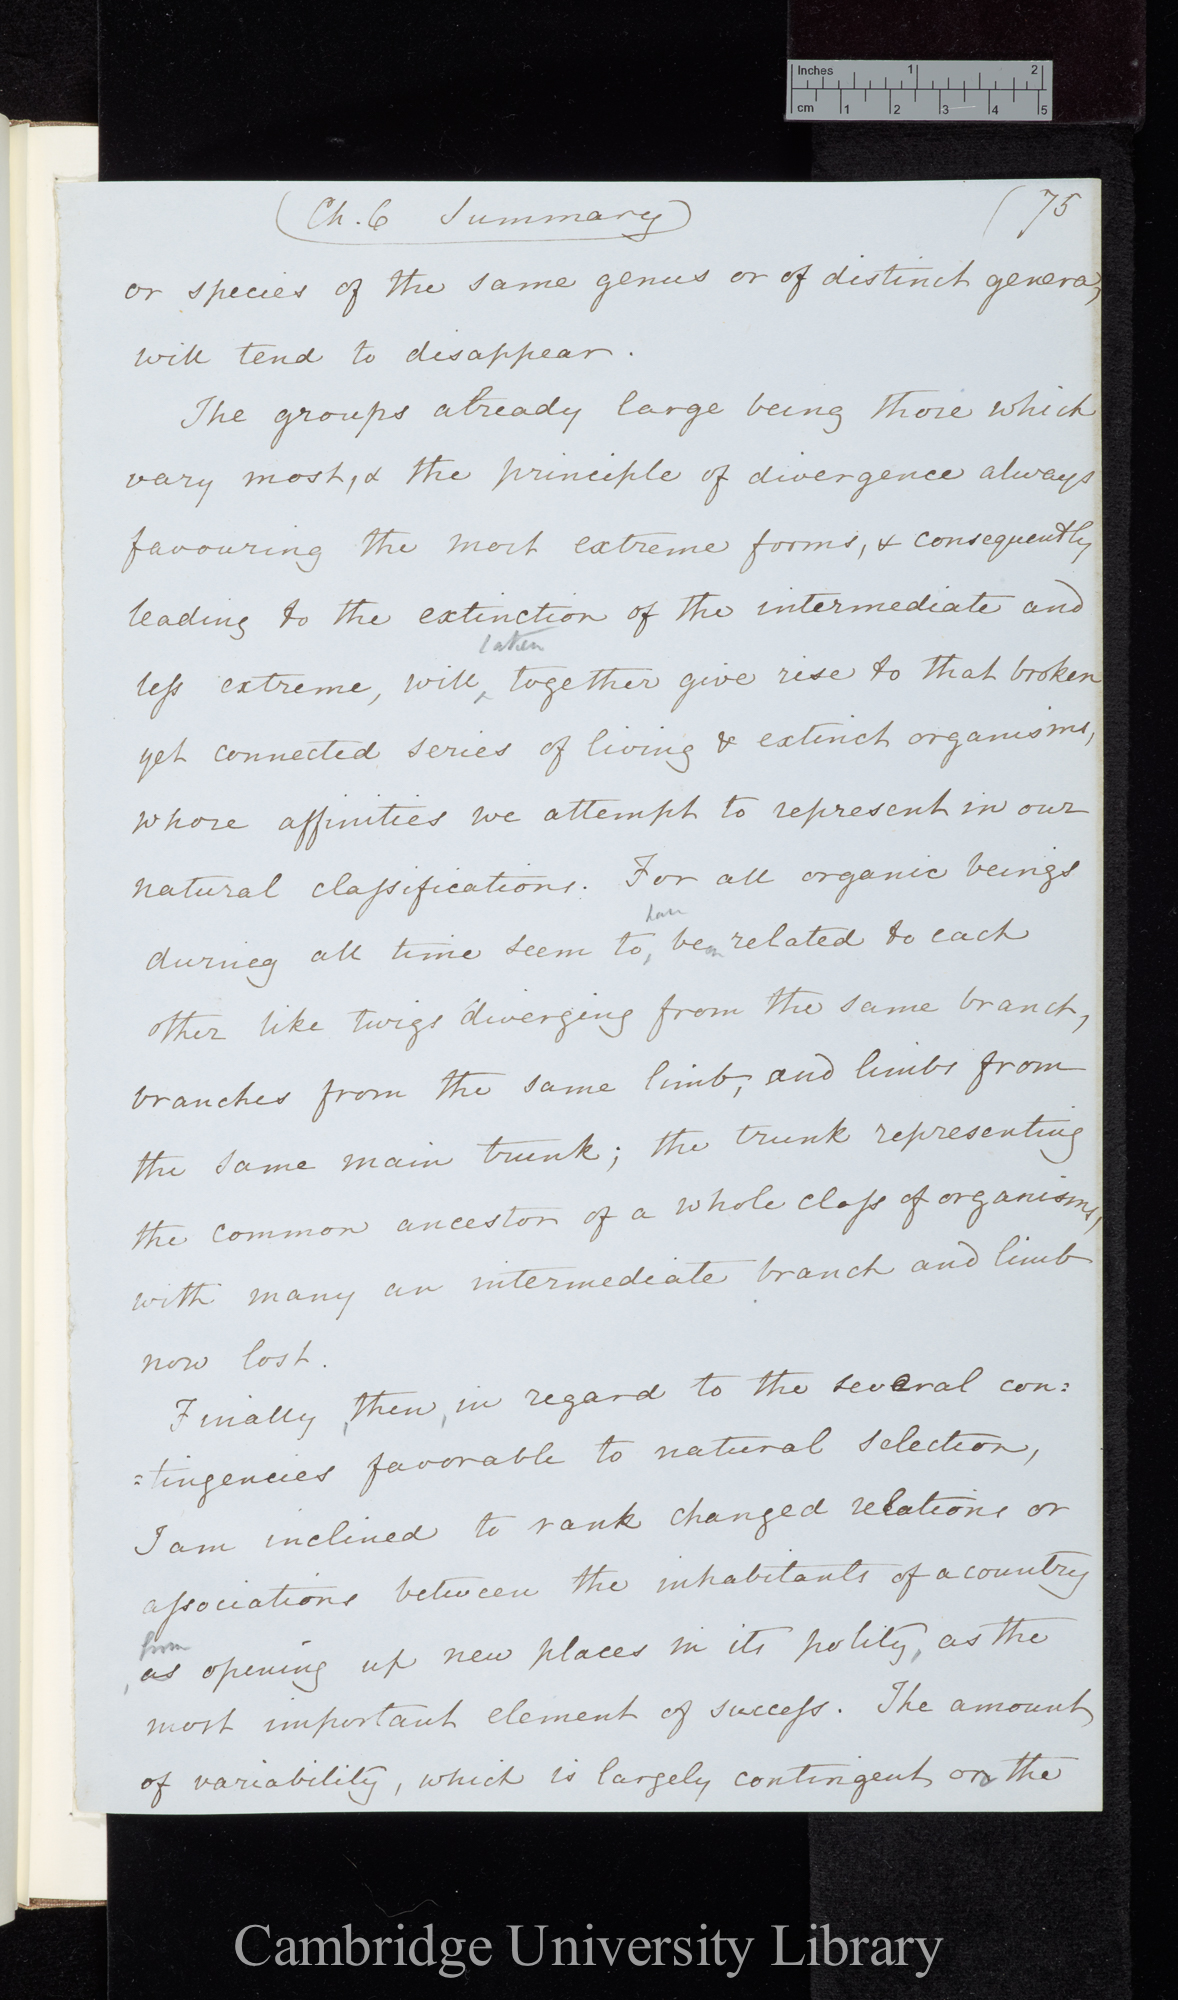 Inches 1 2
cm 1 2 3 4 5
(Ch. 6 Summary)
(75
or species of the same genus or of distinct genera,
will tend to disappear.
The groups already large being those which
vary most, & the principle of divergence always
favouring the most extreme forms, & consequently
leading to the extinction of the intermediate and
taken
less extreme, will ‸ together give rise to that broken
yet connected series of living & extinct organisms,
whose affinities we attempt to represent in our
natural classifications. For all organic beings
have
during all time seem to, been related to each
other like twigs diverging from the same branch,
branches from the same limb, and limbs from
the same main trunk; the trunk representing
the common ancestor of a whole class of organisms,
with many an intermediate branch and limb
now lost.
Finally, then, in regard to the several con:
=tingencies favorable to natural selection,
I am inclined to rank changed relations or
associations between the inhabitants of a country
from
, as opening up new places in its polity, as the
most important element of success. The amount
of variability, which is largely contingent on the
Cambridge University Library